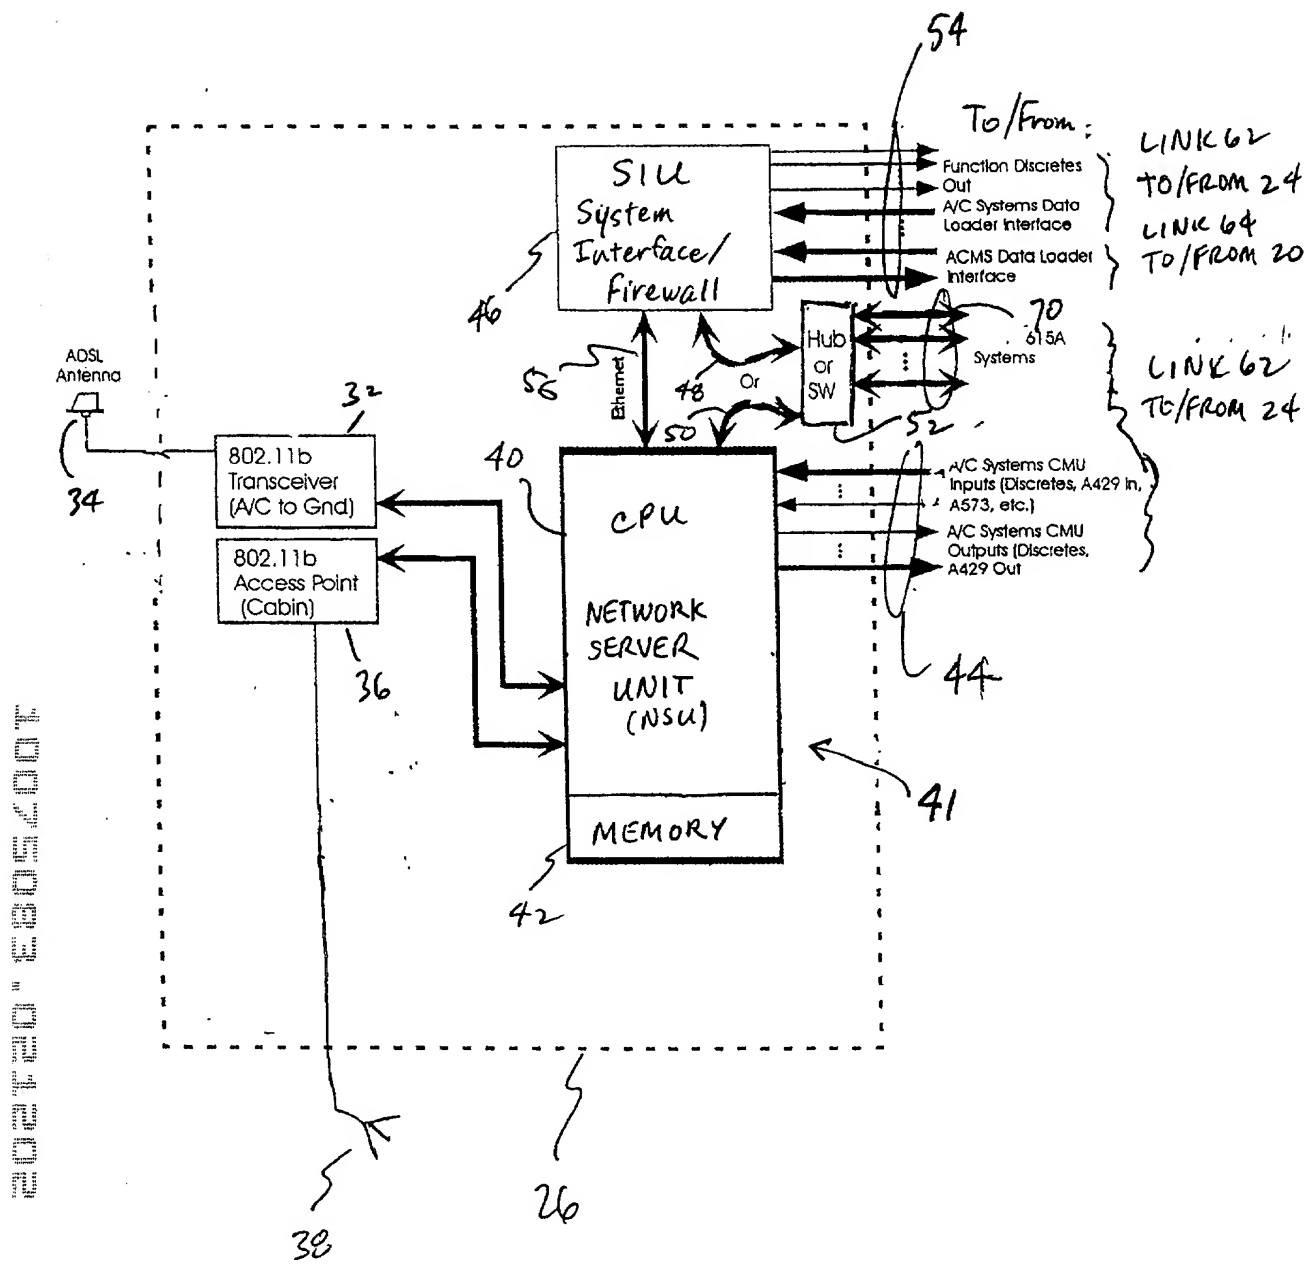 54
To/From:
LINK 62
TO/FROM 24
LINK 64
TO/FROM 20
SIU
System
Interface/
Firewall
46
Function Discretes
Out
A/C Systems Data
Loader Interface
ACMS Data Loader
Interface
70
615A
Systems
LINK 62
TO/FROM 24
Hub
or
SW
52
56
Ethernet
48
Or
50
AOSL
Antenna
34
32
802.11b
Transceiver
(A/C to Gnd)
802.11b
Access Point
(Cabin)
36
40
CPU
NETWORK
SERVER
UNIT
(NSU)
MEMORY
42
A/C Systems CMU
Inputs (Discretes, A429 In,
A573, etc.)
A/C Systems CMU
Outputs (Discretes,
A429 Out
44
41
26
38
10075083.021202